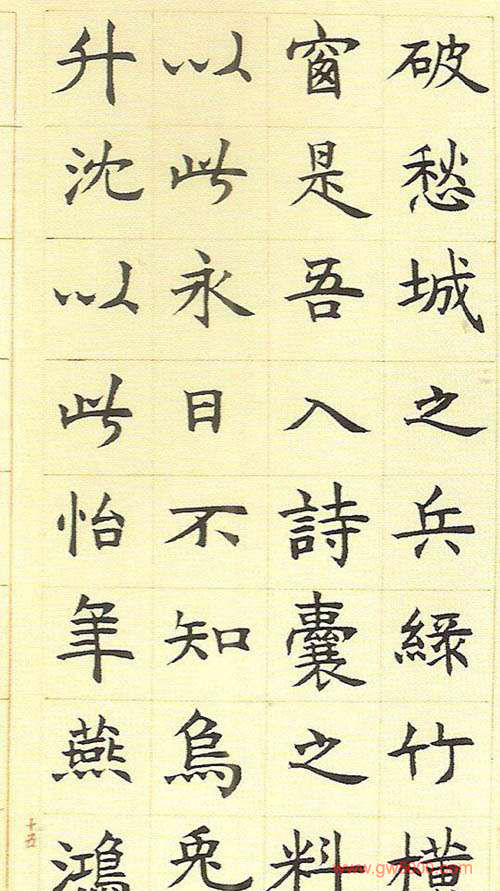 破愁城之兵綠竹橫
窗是吾入詩囊之料
以此永日不知烏兎
升沈以此怡年燕鴻
十五
www.gw5000.com